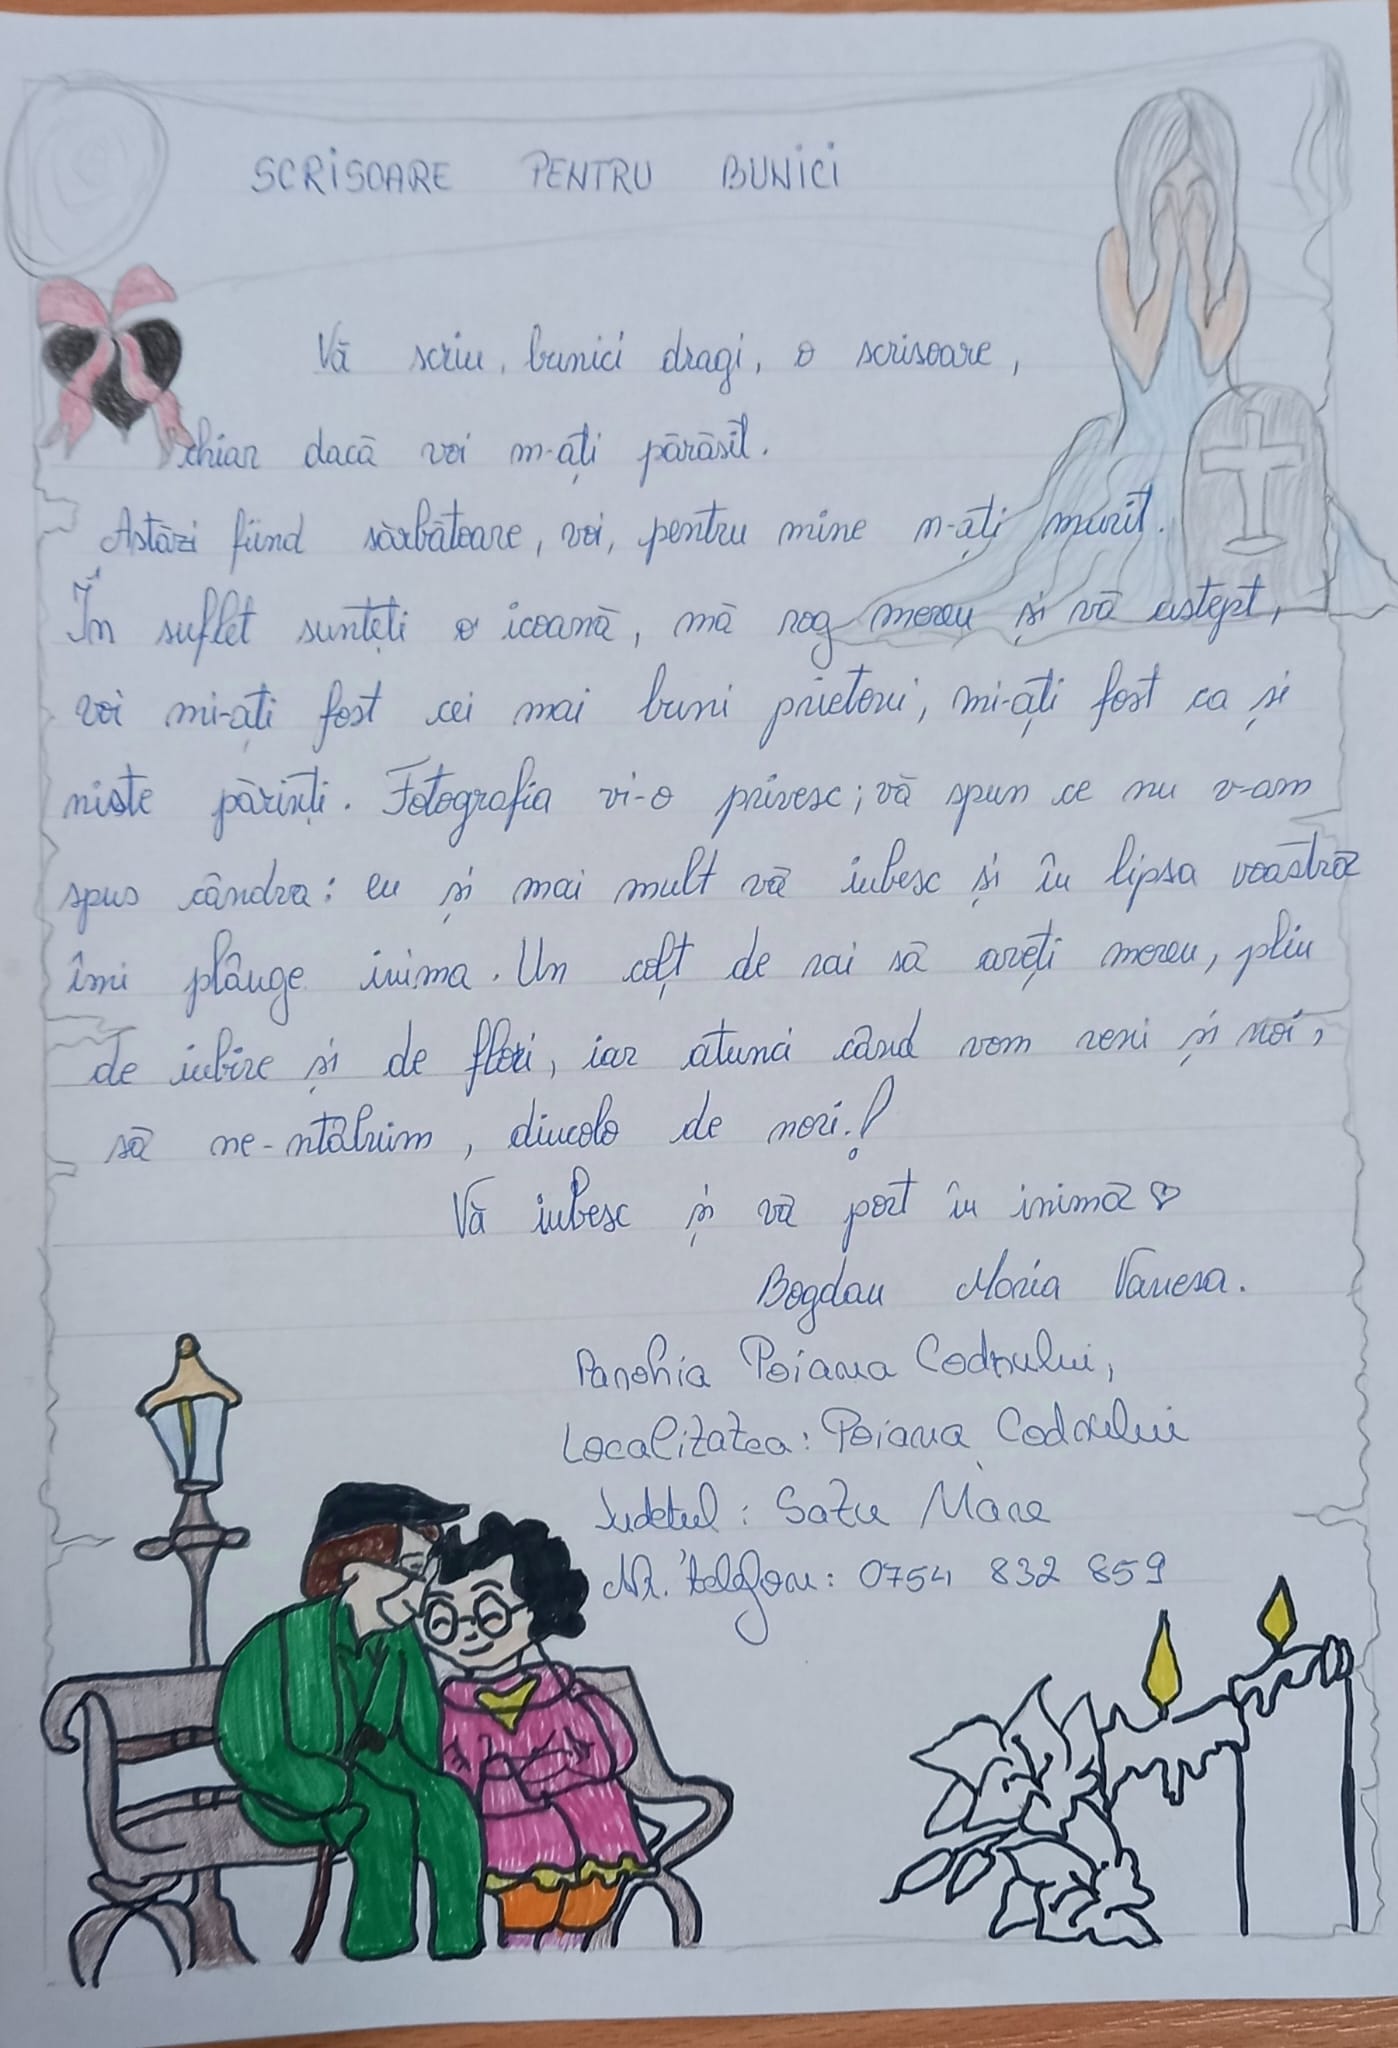 SCRISOARE PENTRU BUNICI
Vă scriu, bunici dragi, o scrisoare,
chiar dacă voi m-ați părăsit.
Astăzi fiind sărbătoare, voi, pentru mine n-ați murit.
În suflet sunteți o icoană, mă rog mereu și vă astept,
voi mi-ați fost cei mai buni prieteni, mi-ați fost ca și
niste părinți. Fotografia vi-o privesc; vă spun ce nu v-am
spus cândva: eu și mai mult vă iubesc și în lipsa voastră
îmi plânge inima. Un colț de rai să aveți mereu, plin
de iubire și de flori, iar atunci când vom veni și noi,
să ne-ntâlnim, dincolo de nori.!
Vă iubesc și vă port în inimă ♡
Bogdan Maria Vanesa.
Parohia Poiana Codrului,
Localitatea: Poiana Codrului
Judetul: Satu Mare
Nr. telefon: 0754 832 859